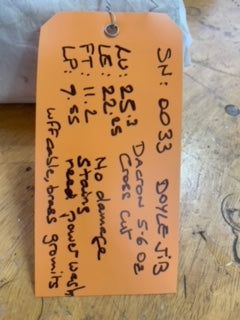 SN: 0033 DOYLE JIB
DACRON 5.6 OZ
Cross Cut
LU: 25.2
LE: 22.25
FT: 11.2
LP: 7.55
No damage
Stains
need power wash
wff cable, brass gromits